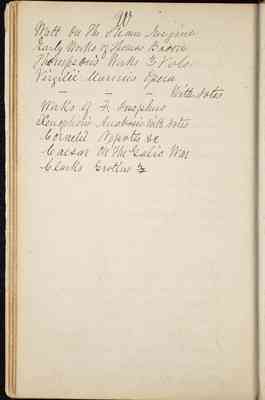 W
Watt On The Steam Engine
Early Works of Thomas
Thompson's Works 3 Vols
Virgilii Maronis Opera
— — — With Notes
Works of F. Josephus
Xenophons Anabasis With Notes
Cornelii Nepotis &c
Caesar On The Galic War
Clarks Grotius